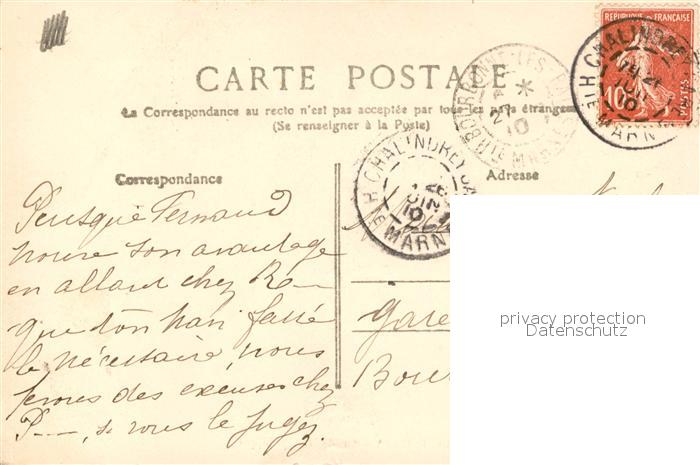 REPUBLIQUE FRANÇAISE
10
POSTES
CHALINDREY
HTE MARNE
BOURBONNE-LES-
HTE MARNE
10
CARTE POSTALE
La Correspondance au recto n'est pas acceptée par tous les pays étrangers
(Se renseigner à la Poste)
CHALINDREY
HTE MARNE
Correspondance
Adresse
Puisque Fernand
trouve son avantage
en allant chez R—
que ton mari fasse
le nécessaire, nous
ferons des excuses chez
P—, si vous le jugez.
Gare
privacy protection
Datenschutz